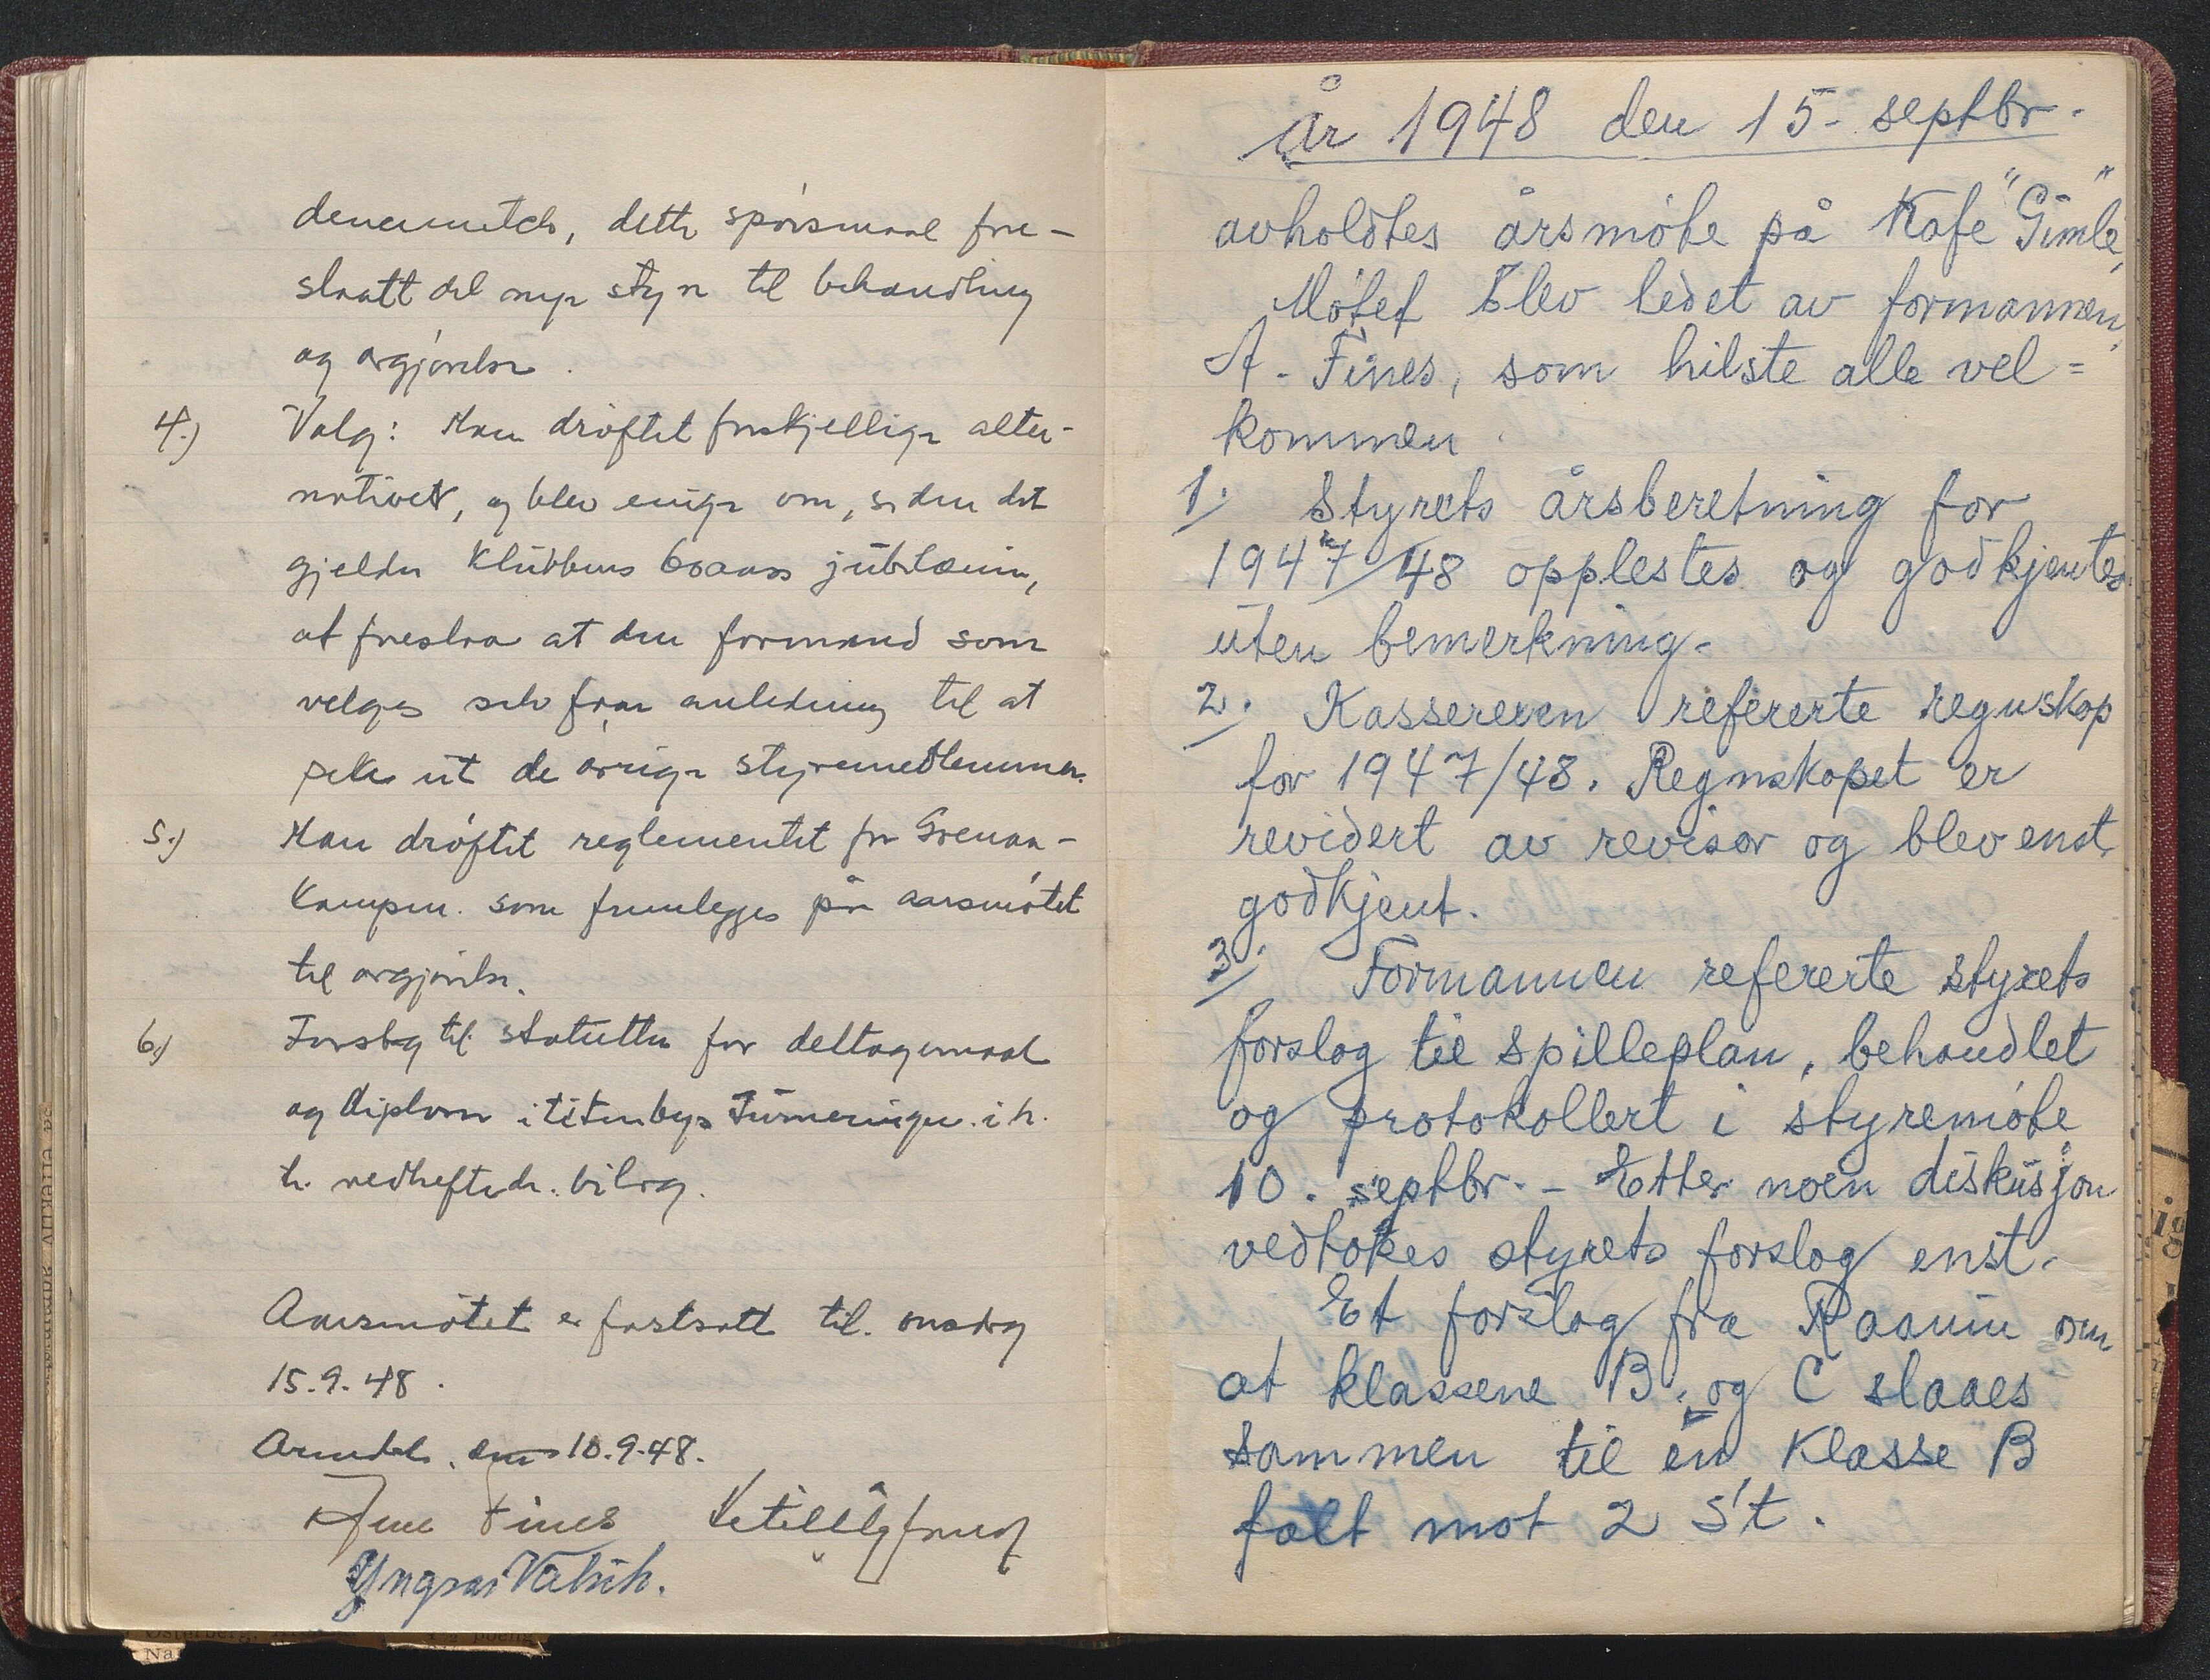 dette spörsmaal fore-
slaatt del nye styre til behandling
og avgjörelse.
4.) Valg: Man dröftet forskjellige alter-
nativer, og blev enige om, siden det
gjelder Klubbens 60aars jubilæum,
at foreslaa at den formand som
velges selv faar anledning til at
peke ut de övrige styremedlemmer.
5.) Man dröftet reglementet for Grenaa-
kampen. som fremlegges på aarsmötet
til avgjörelse.
6.) Forslag til statutter for deltagermaal
og diplom i Turneringer. i h.
t. vedheftede bilag.
Aarsmötet er fastsatt til. onsdag
15.9.48.
Arendal, den 10.9.48.
Arne Fines
Yngvar
År 1948 den 15. septbr.
avholdtes årsmöte på Kafe "Gimle"
Mötet blev ledet av formannen,
A. Fines, som hilste alle vel=
kommen.
1. Styrets årsberetning for
1947/48 opplestes og godkjentes
uten bemerkning.
2. Kassereren refererte regnskap
for 1947/48. Regnskapet er
revidert av revisor og blev enst.
godkjent.
3. Formannen refererte styrets
forslag til spilleplan, behandlet
og protokollert i styremöte
10. septbr. - Etter noen diskusjon
vedtokes styrets forslag enst.
Et forslag fra Raanum om
at klassene B. og C slaaes
sammen til en Klasse B
falt mot 2 St.